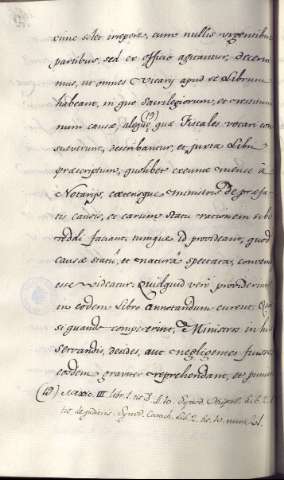 cune solet irrepere, cum nullis urgentibus
partibus, sed ex officio agitantur, decerni
mus, ut omnes Vicarij apud se Librum
habeant, in quo sacrilegiorum, et
num causæ aliæq; quæ Fiscales vocari con
sueverunt, describantur, et juxta Libri
præscriptum, quolibet exeunte mense à
Notarijs, cæterisque ministris de præfa
tis causis, et earum statu rationem sibi
reddi faciant, unique id provideant, quod
causæ statui, et naturâ spectata, conveni
esse videatur. Quidquid verò providerint
in eodem Libro annotandum curent. Quod
si quando compererint, Ministros in his
servandis, desides, aut negligentes fuisse
eosdem graviter reprehendant, et puniant
III libr. 1. tit. 3. Synod. lib. 2.
tit. de judiciis. Synod. lib. 2. tit. 10. num. 21.